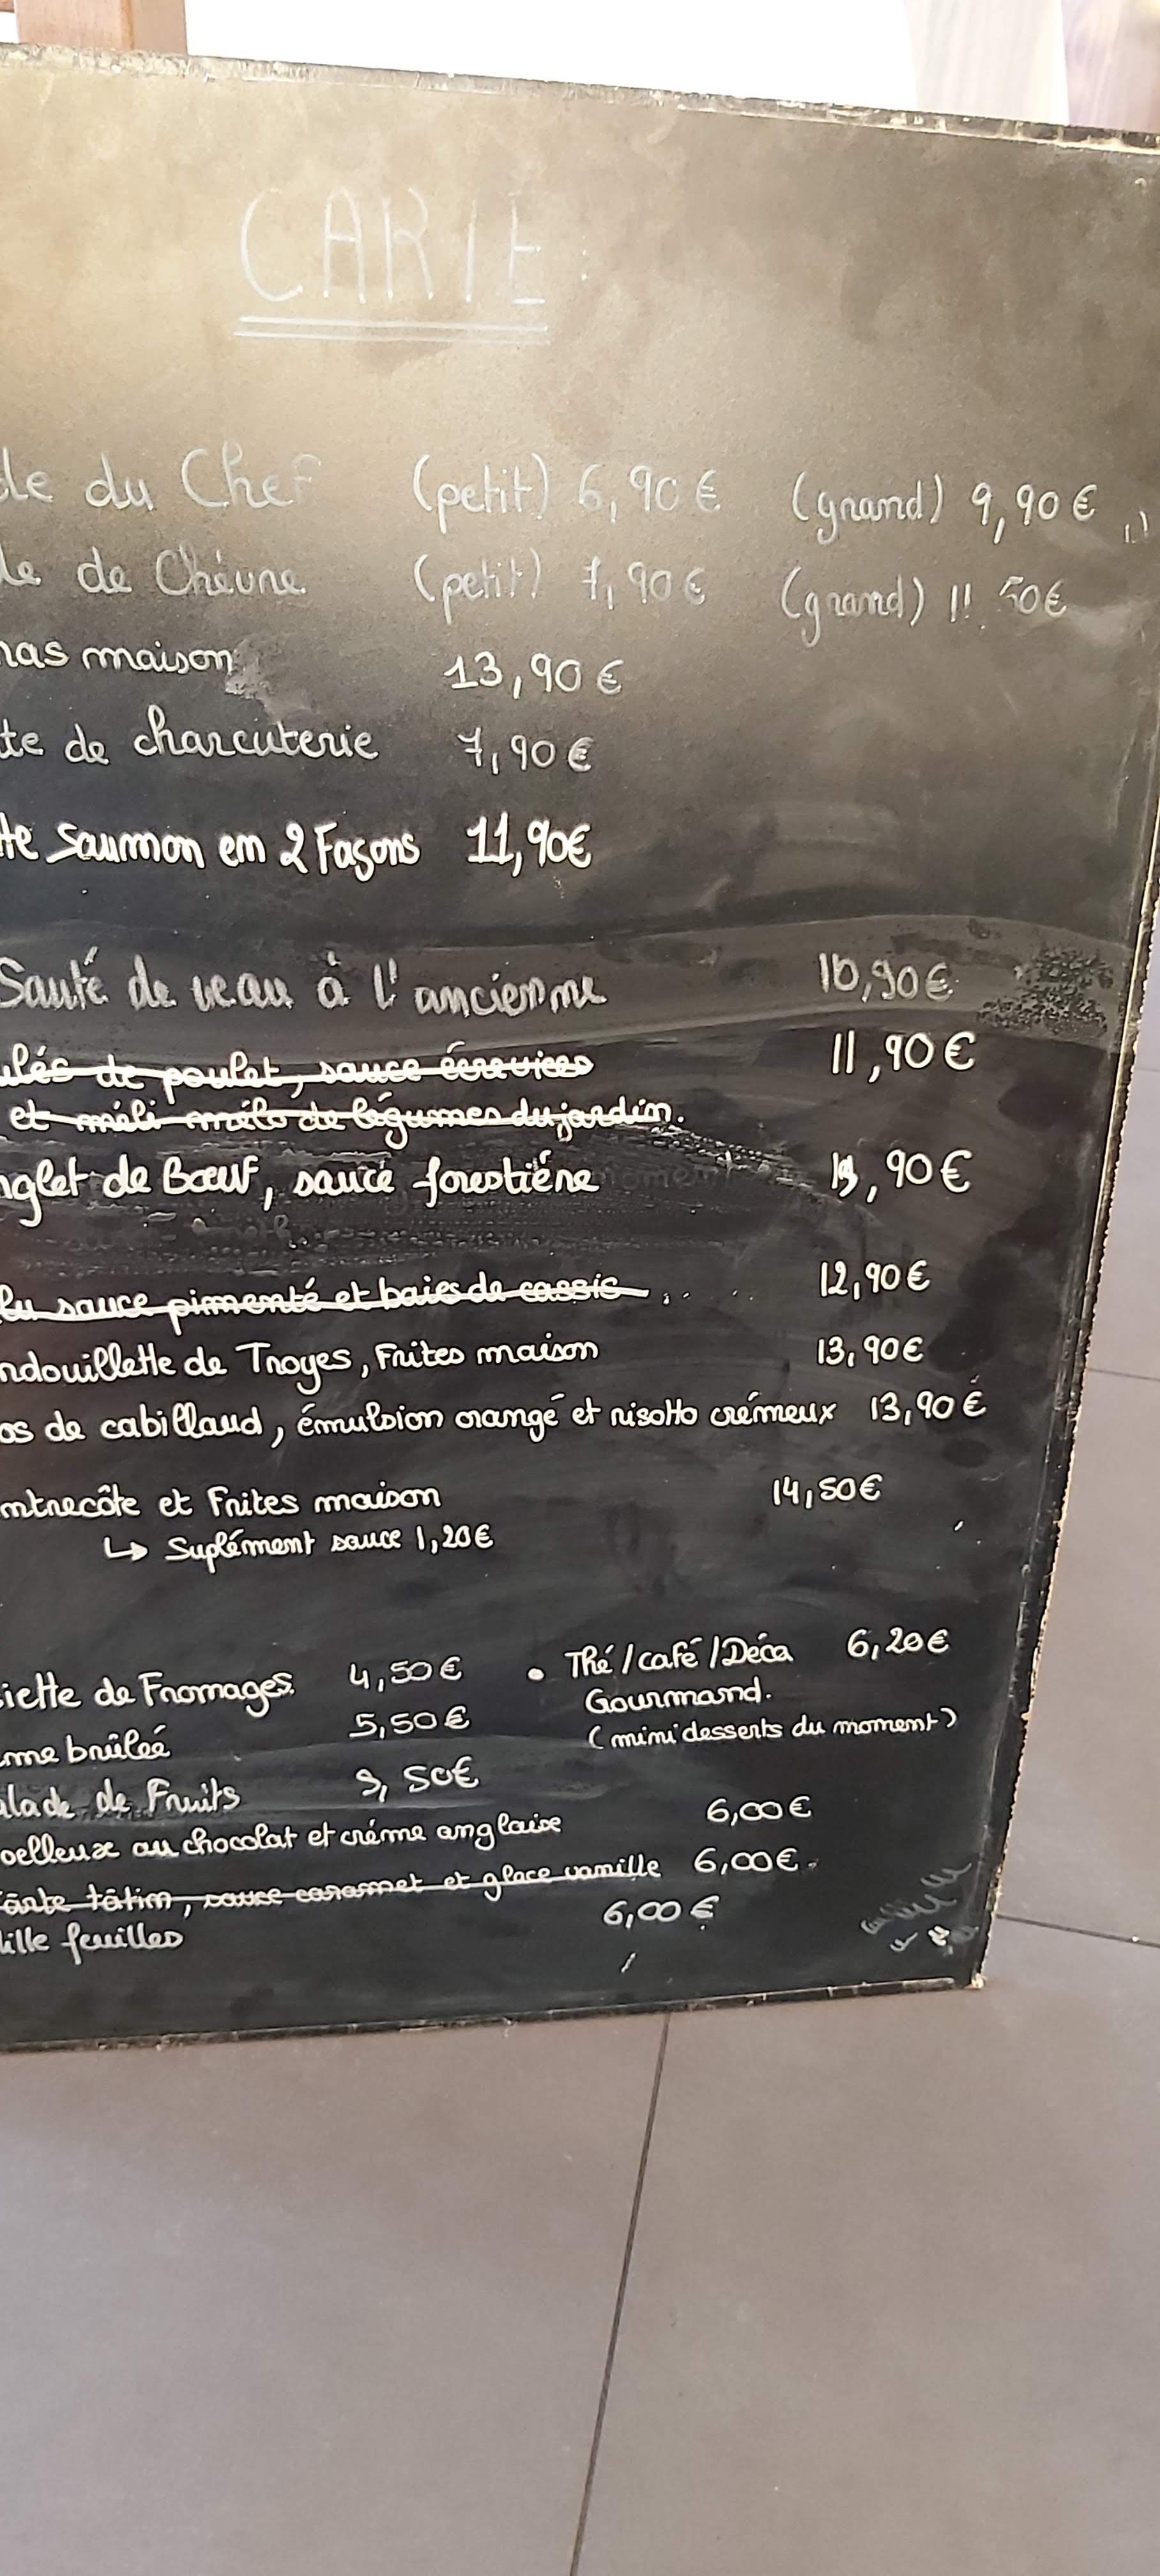 CARTE:
du Chef (petit) 6,90€ (grand) 9,90€
de Chèvre (petit) 7,90€ (grand) 11.50€
maison 13,90€
de charcuterie 7,90€
Saumon en 2 Façons 11,90€
Sauté de veau à l'ancienne 10,90€
de poulet, sauce écrevices 11,90€
et méli mélo de légumes du jardin.
de Bœuf, sauce forestière ,90€
sauce pimenté et baies de cassis 12,90€
ndouillette de Troyes, Frites maison 13,90€
os de cabillaud, émulsion orange et risotto crémeux 13,90€
ntrecôte et Frites maison 14,50€
↳ Suplément sauce 1,20€
iette de Fromages. 4,50€ • Thé/café/Déca 6,20€
Gourmand.
me brûleé 5,50€ (mini desserts du moment)
alade de Fruits ,50€
oelleux au chocolat et crème anglaise 6,00€
Tarte tâtin, sauce caramel et glace vanille 6,00€.
ille feuilles 6,00€